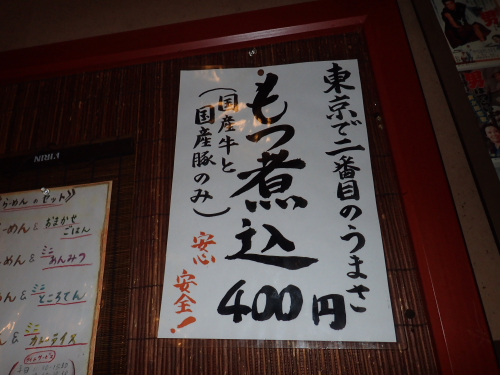 東京で二番目のうまさ
もつ煮込
(国産牛と
国産豚のみ)
400円
安心
安全!
KIRIN
らーめんのセット》
ーめん & おまかせごはん
めん & ミニあんみつ
めん & ミニところてん
ん & ミニカレーライス